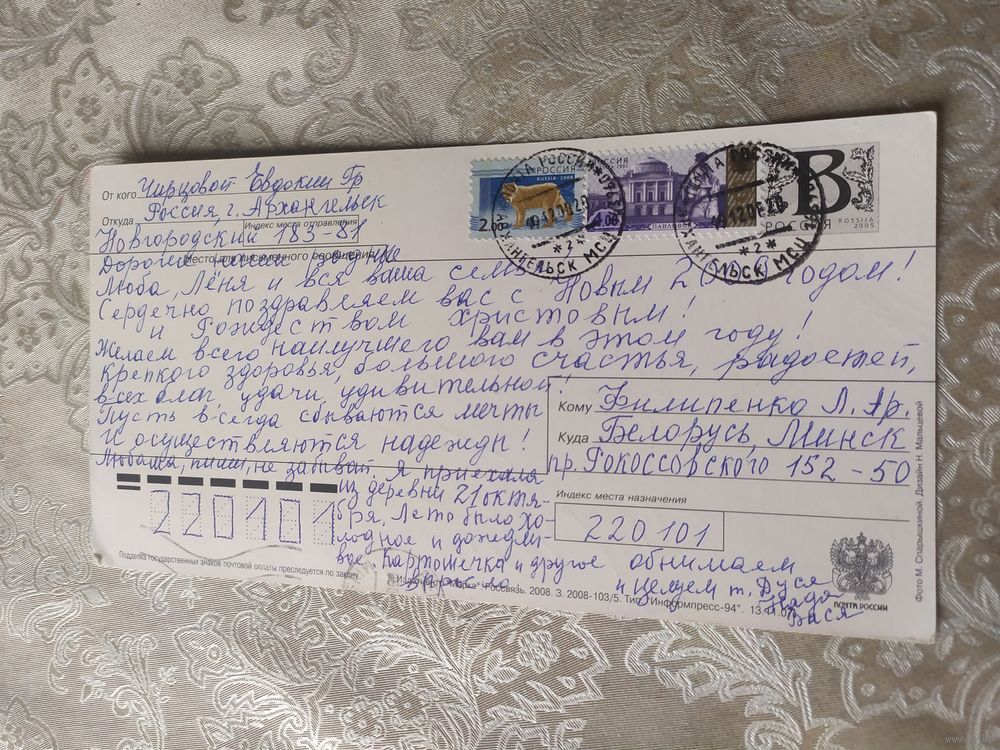 От кого Чирцовой Евдокии Гр
Откуда Россия, г. Архангельск
Индекс места отправления
Новгородский 183-81
Место для письменного сообщения
Дорогие наши родные
Люба, Лёня и вся ваша семья
Сердечно поздравляем вас с Новым годом!
и Рождеством Христовым!
Желаем всего наилучшего вам в этом году!
Крепкого здоровья, большого счастья, радостей,
всех благ, удачи, удивительной,
Пусть всегда сбываются мечты
И осуществляются надежды!
Любаша, пиши, не забывай я приехала
из деревни 21 октя-
бря, Лето было хо-
лодное и дождли-
вое. Картошечка и другое
обнимаем
и целуем т. Дуся
Надя
Вася
220101
Подделка государственных знаков почтовой оплаты преследуется по закону
Кому Филипенко Л. Гр.
Куда Белорусь, Минск
пр. Рокоссорского 152-50
Индекс места назначения
220101
ПОЧТА РОССИИ
© Издатцентр "Марка". Россвязь. 2008. З. 2008-103/5. Тип. "Информпресс-94".
Фото М. Спарышкиной. Дизайн Н. Мальцевой
РОССИЯ
RUSSIA • 2008
РОССИЯ
4.00
ПАВЛОВСК
В
РОССИЯ
ROSSIJA
2005
ПОЧТА РОССИИ
АРХАНГЕЛЬСК МСЦ
*2*
ПОЧТА РОССИИ
АРХАНГЕЛЬСК МСЦ
*2*